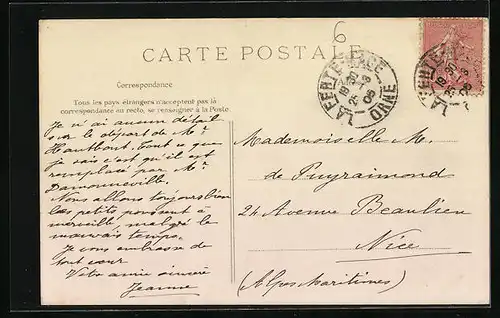 6
CARTE POSTALE
Correspondance
Tous les pays étrangers n'acceptent pas la
correspondance au recto, se renseigner à la Poste.
LA FERTE-MACE
19 30
25 -3
05
ORNE
Je n'ai aucun détail
sur le départ de Mr
Hautbout. Tout ce que
je sais c'est qu'il est
remplacé par Mr
Damonneville.
Nous allons toujours bien
les petits poussent à
merveille malgré le
mauvais temps.
Je vous embrasse de
tout cœur
Votre amie sincère
Jeanne
Mademoiselle M.
de Puyraimond
24 Avenue Beaulieu
Nice
(Alpes Maritimes)